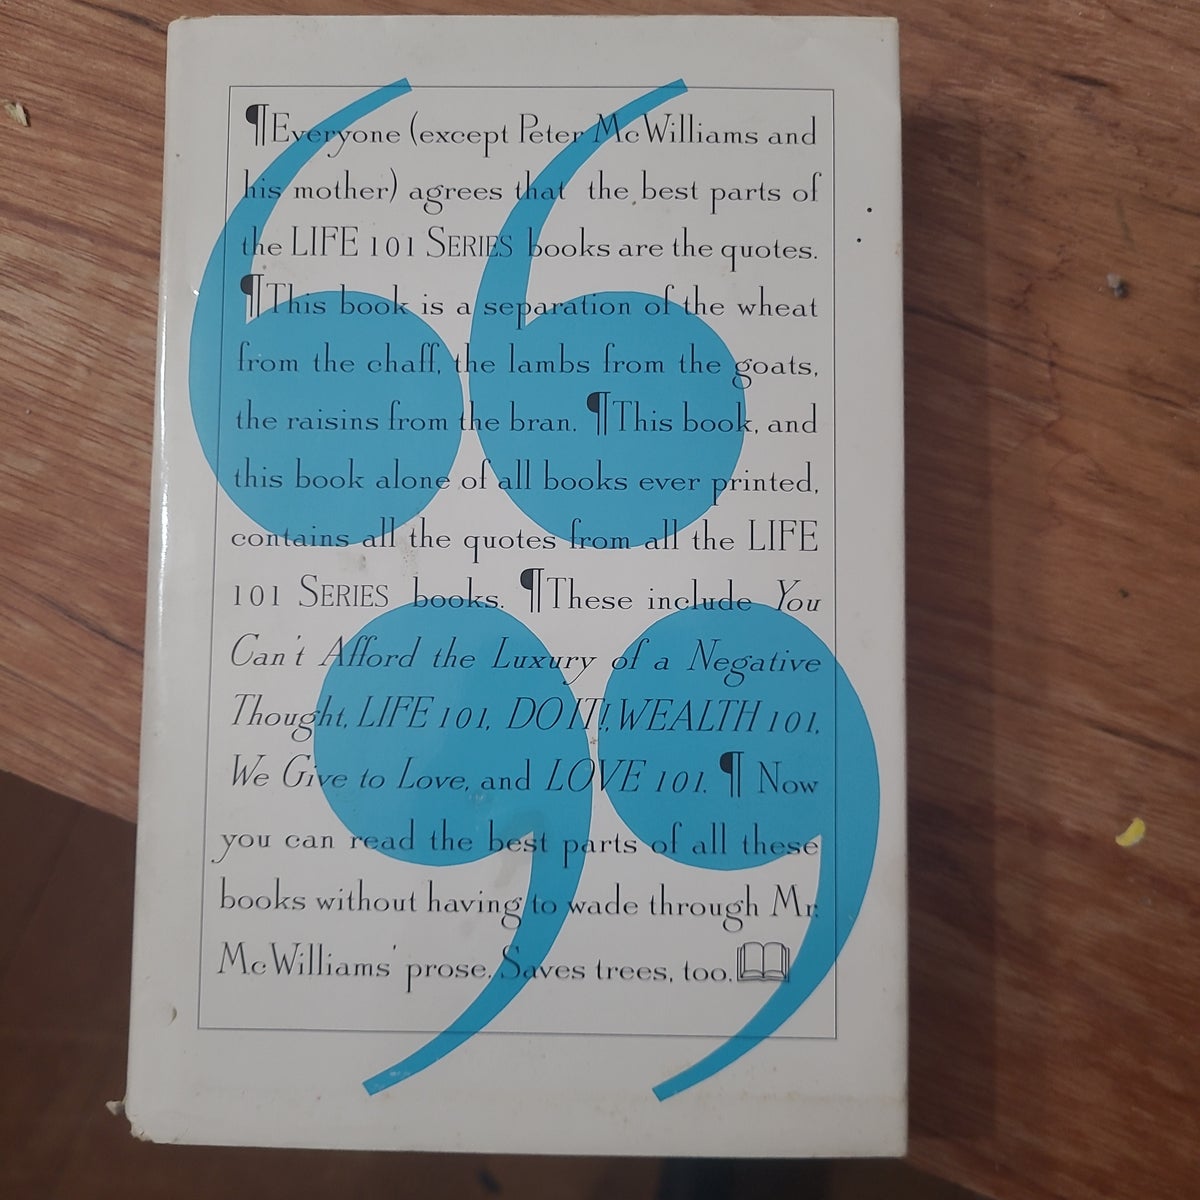 ¶Everyone (except Peter McWilliams and
his mother) agrees that the best parts of
the LIFE 101 SERIES books are the quotes.
¶This book is a separation of the wheat
from the chaff, the lambs from the goats,
the raisins from the bran. ¶This book, and
this book alone of all books ever printed,
contains all the quotes from all the LIFE
101 SERIES books. ¶These include You
Can't Afford the Luxury of a Negative
Thought, LIFE 101, DO IT!, WEALTH 101,
We Give to Love, and LOVE 101. ¶ Now
you can read the best parts of all these
books without having to wade through Mr.
McWilliams' prose. Saves trees, too.